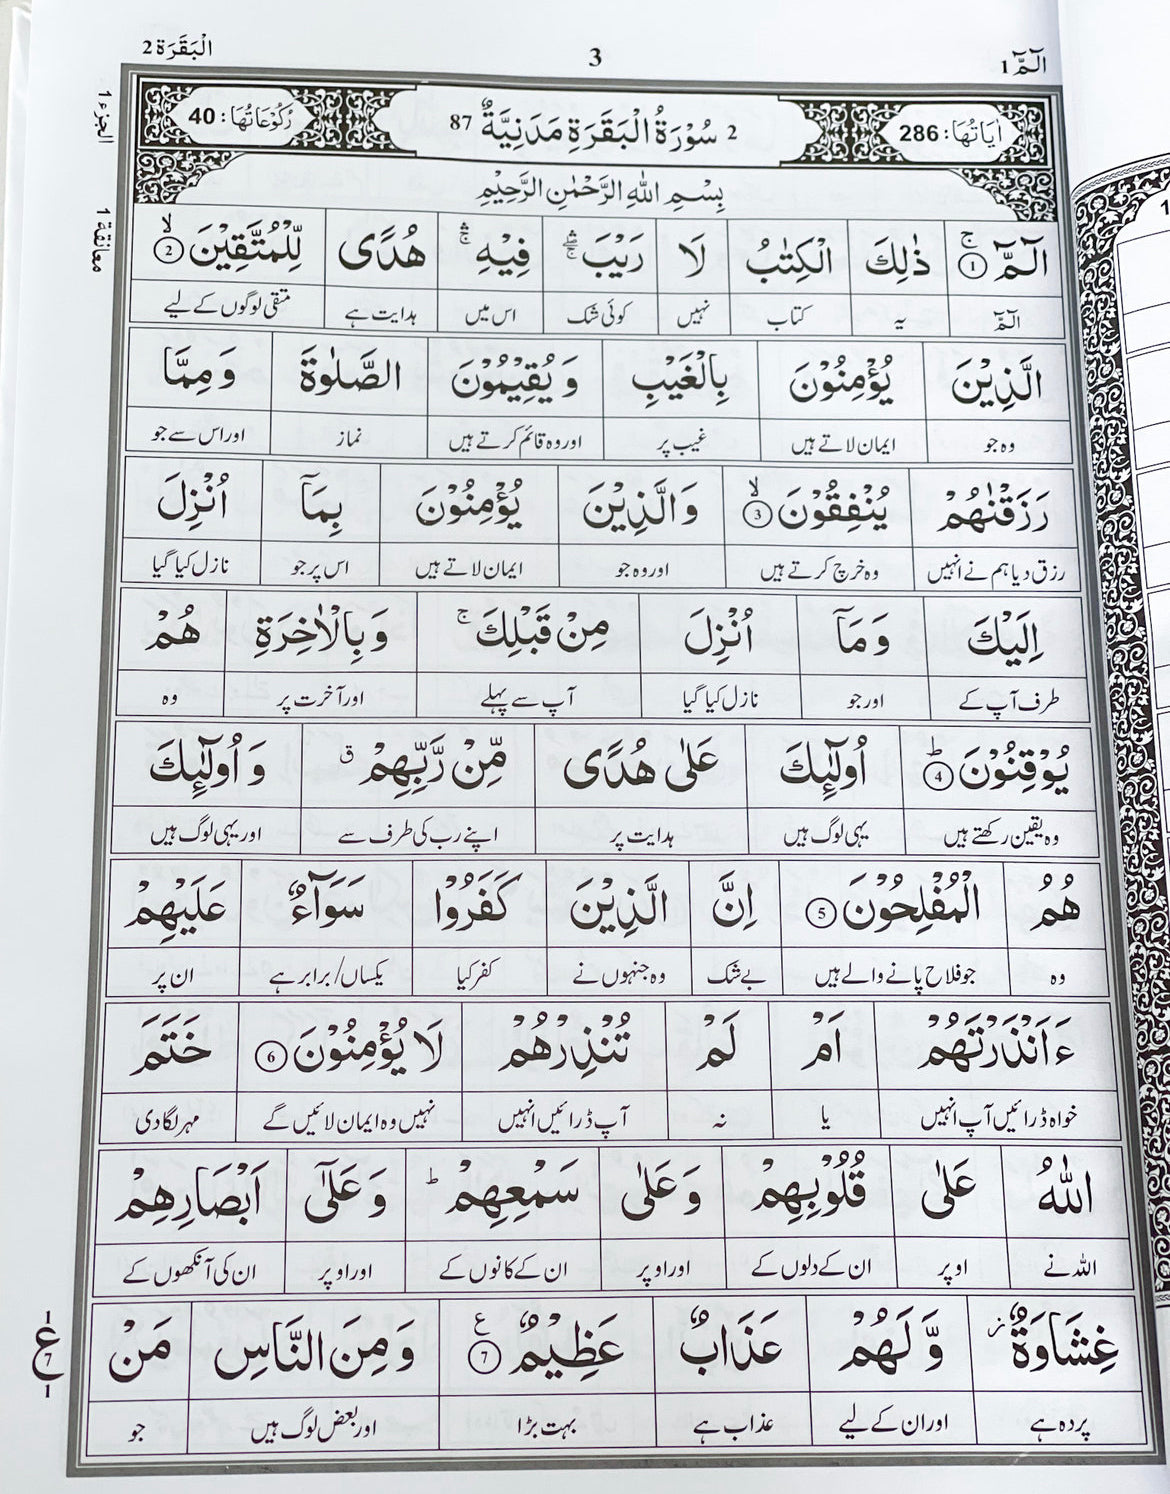 الٓمّٓ 1
3
الْبَقَرَة 2
الجزء 1
معانقة 1
اٰيَاتُهَا: 286
2 سُوْرَةُ الْبَقَرَةِ مَدَنِيَّةٌ 87
رُكُوْعَاتُهَا: 40
بِسْمِ اللّٰهِ الرَّحْمٰنِ الرَّحِيْمِ
الٓمّٓ ۚ 1 ذٰلِكَ الْكِتٰبُ لَا رَيْبَ ۛۖۚ فِيْهِ ۛۚ هُدًى لِّلْمُتَّقِيْنَ ۙ 2
الٓمّٓ یہ کتاب نہیں کوئی شک اس میں ہدایت ہے متقی لوگوں کے لیے
الَّذِيْنَ يُؤْمِنُوْنَ بِالْغَيْبِ وَيُقِيْمُوْنَ الصَّلٰوةَ وَمِمَّا
وہ جو ایمان لاتے ہیں غیب پر اور وہ قائم کرتے ہیں نماز اور اس سے جو
رَزَقْنٰهُمْ يُنْفِقُوْنَ ۙ 3 وَالَّذِيْنَ يُؤْمِنُوْنَ بِمَآ اُنْزِلَ
رزق دیا ہم نے انہیں وہ خرچ کرتے ہیں اور وہ جو ایمان لاتے ہیں اس پر جو نازل کیا گیا
اِلَيْكَ وَمَآ اُنْزِلَ مِنْ قَبْلِكَ ۚ وَبِالْاٰخِرَةِ هُمْ
طرف آپ کے اور جو نازل کیا گیا آپ سے پہلے اور آخرت پر وہ
يُوْقِنُوْنَ ؕ 4 اُولٰٓئِكَ عَلٰى هُدًى مِّنْ رَّبِّهِمْ ق وَاُولٰٓئِكَ
وہ یقین رکھتے ہیں یہی لوگ ہیں ہدایت پر اپنے رب کی طرف سے اور یہی لوگ ہیں
هُمُ الْمُفْلِحُوْنَ 5 اِنَّ الَّذِيْنَ كَفَرُوْا سَوَآءٌ عَلَيْهِمْ
وہ جو فلاح پانے والے ہیں بے شک وہ جنہوں نے کفر کیا یکساں/برابر ہے ان پر
ءَاَنْذَرْتَهُمْ اَمْ لَمْ تُنْذِرْهُمْ لَا يُؤْمِنُوْنَ 6 خَتَمَ
خواہ ڈرائیں آپ انہیں یا نہ آپ ڈرائیں انہیں نہیں وہ ایمان لائیں گے مہر لگا دی
اللّٰهُ عَلٰى قُلُوْبِهِمْ وَعَلٰى سَمْعِهِمْ ؕ وَعَلٰٓى اَبْصَارِهِمْ
اللہ نے اوپر ان کے دلوں کے اور اوپر ان کے کانوں کے اور اوپر ان کی آنکھوں کے
غِشَاوَةٌ ز وَّلَهُمْ عَذَابٌ عَظِيْمٌ ع 7 وَمِنَ النَّاسِ مَنْ
1 ع 7 1
پردہ ہے اور ان کے لیے عذاب ہے بہت بڑا اور بعض لوگ ہیں جو